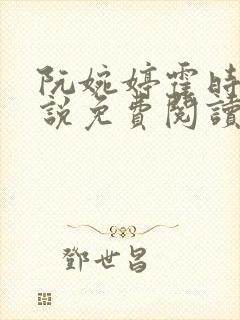 阮婉婷霆時
說免費閱讀
鄧世昌